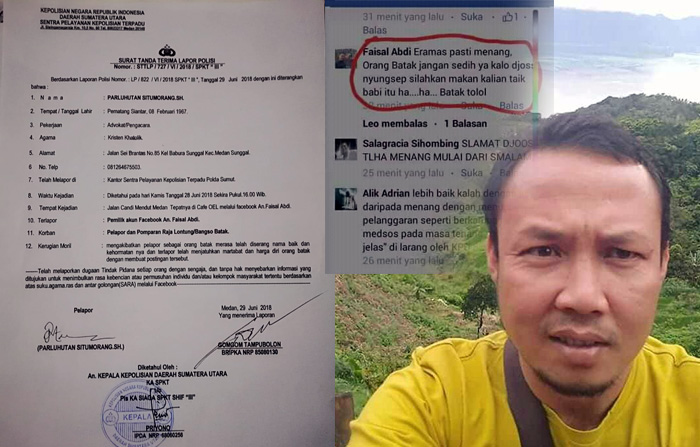 KEPOLISIAN NEGARA REPUBLIK INDONESIA
DAERAH SUMATERA UTARA
SENTRA PELAYANAN KEPOLISIAN TERPADU
SURAT TANDA TERIMA LAPOR POLISI
Nomor : STTLP / 727 / VI / 2018 / SPKT " III "
Berdasarkan Laporan Polisi Nomor. LP / 822 / VI / 2018 SPKT " III ", Tanggal 29 Juni 2018 dengan ini diterangkan
bahwa :
1. N a m a : PARLUHUTAN SITUMORANG.SH.
2. Tempat / Tanggal Lahir : Pematang Siantar, 08 Februari 1967.
3. Pekerjaan : Advokat/Pengacara.
4. Agama : Kristen
5. Alamat : Jalan Sei Brantas No.85 Kel Babura Sunggal Kec.Medan Sunggal.
6. No. Telp : 081264675503.
7. Telah Melapor di : Kantor Sentra Pelayanan Kepolisian Terpadu Polda Sumut.
8. Waktu Kejadian : Diketahui pada hari Kamis Tanggal 28 Juni 2018 Sekira Pukul.16.00 Wib.
9. Tempat Kejadian : Jalan Candi Mendut Medan Tepatnya di Cafe OEL melalui facebook An.Faisal Abdi.
10. Terlapor : Pemilik akun Facebook An. Faisal Abdi.
11. Korban : Pelapor dan Pomparan Raja Lontung/Bangso Batak.
12. Kerugian Moril : mengakibatkan pelapor sebagai orang batak merasa telah diserang nama baik dan
kehormatan nya dan terlapor telah menjatuhkan martabat dan harga diri orang batak
dengan membuat postingan tersebut.
-----Telah melaporkan dugaan Tindak Pidana setiap orang dengan sengaja, dan tanpa hak menyebarkan informasi yang
ditujukan untuk menimbulkan rasa kebencian atau permusuhan individu dan/atau kelompok masyarakat tertentu berdasarkan
atas suku,agama.ras dan antar golongan(SARA) melalui Facebook.
Medan, 29 Juni 2018
Pelapor
Yang menerima Laporan
(PARLUHUTAN SITUMORANG.SH.)
GOMGOM TAMPUBOLON
BRIPKA NRP 85080130
Diketahui Oleh :
An. KEPALA KEPOLISIAN DAERAH SUMATERA UTARA
KA SPKT
Pls KA SIAGA SPKT SHIF "III"
KEPALA
PRIYONO
IPDA NRP
31 menit yang lalu · Suka · 1 ·
Balas
Faisal Abdi Eramas pasti menang,
Orang Batak jangan sedih ya kalo djoss
nyungsep silahkan makan kalian taik
babi itu ha....ha... Batak tolol
menit yang lalu · Suka · Balas
Leo membalas · 1 Balasan
Salagracia Sihombing SLAMAT DJOOS
TLHA MENANG MULAI DARI SMALA
25 menit yang lalu
Alik Adrian lebih baik kalah deng
daripada menang dengan
pelanggaran seperti
medsos pada masa
jelas" di larang oleh
26 menit yang lalu